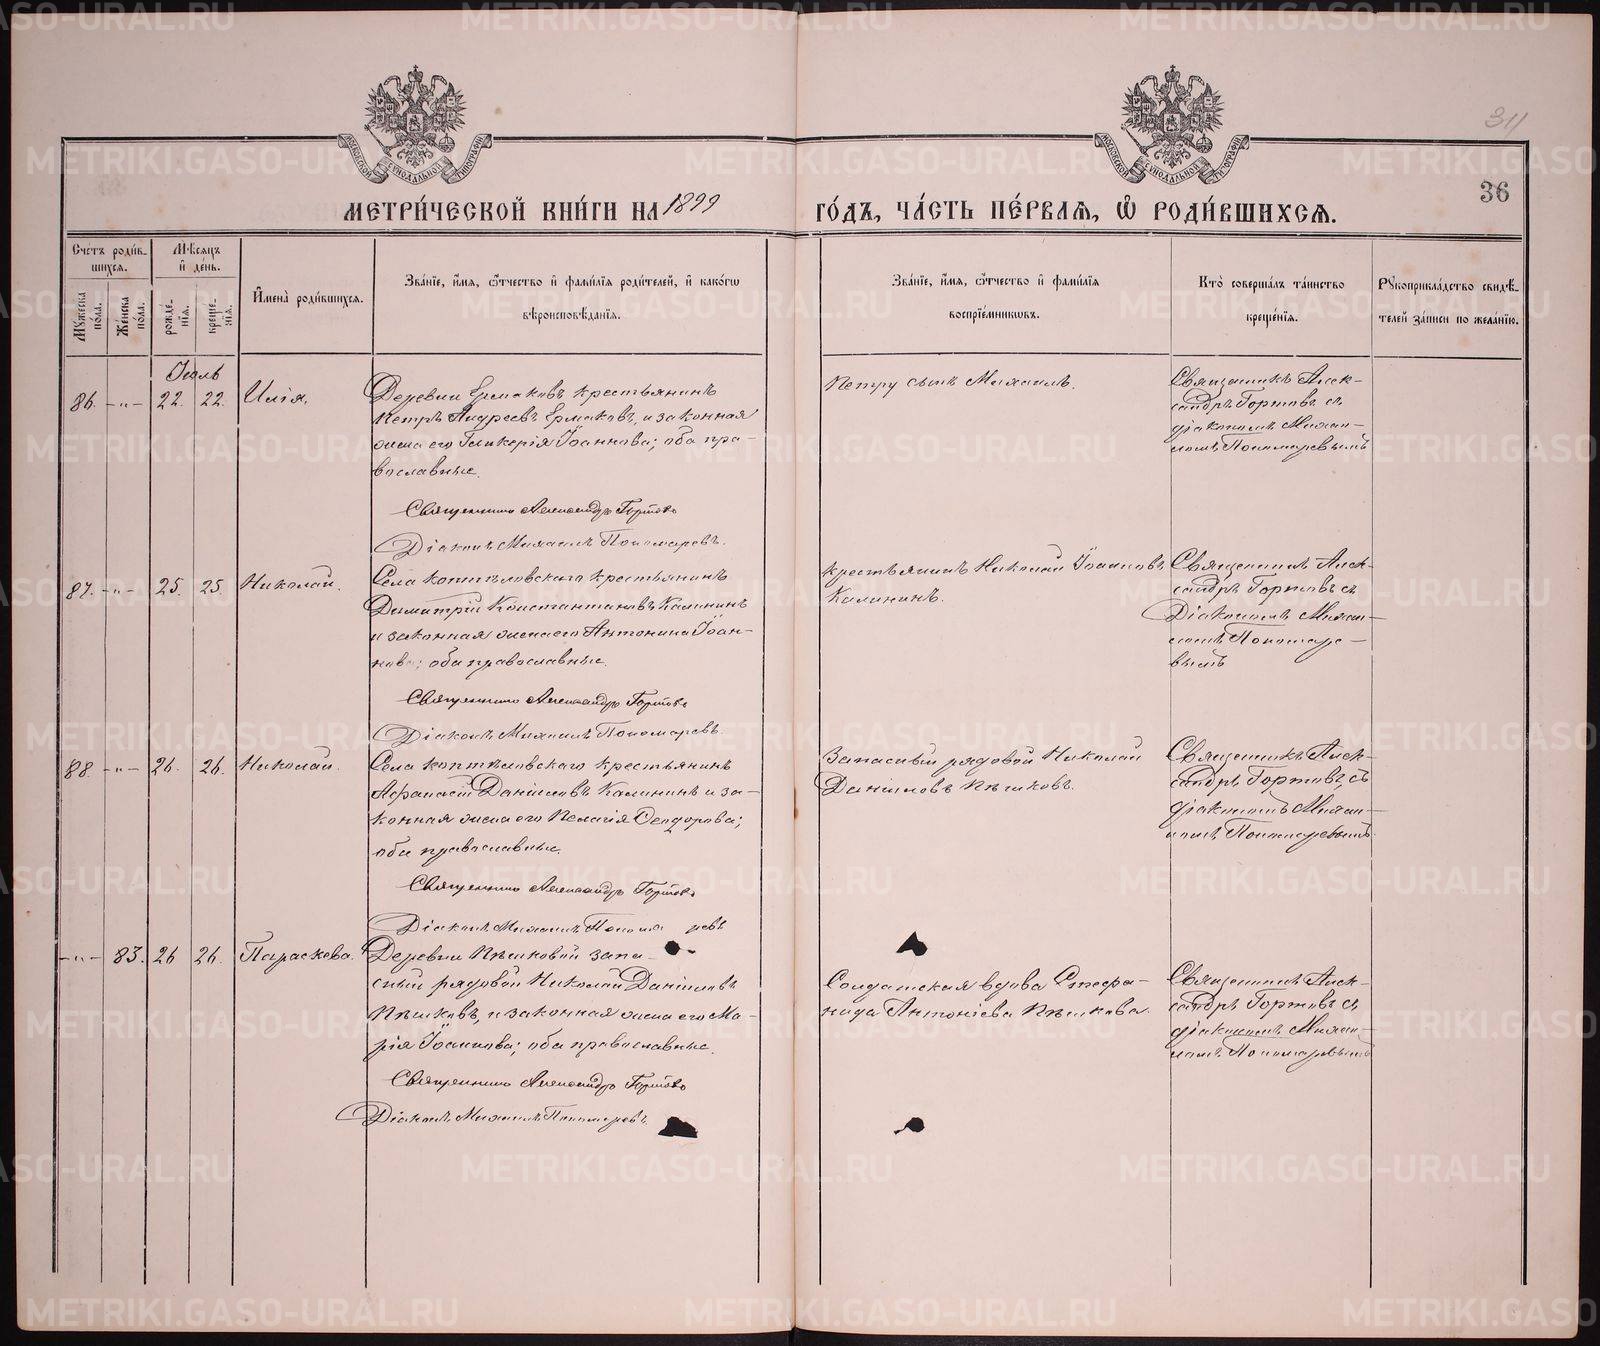 METRIKI.GASO-URAL.RU
311
36
МОСКОВСКОЙ СѴНОДАЛЬНОЙ ТИПОГРАФІИ
МОСКОВСКОЙ СѴНОДАЛЬНОЙ ТИПОГРАФІИ
МЕТРИ́ЧЕСКОЙ КНИ́ГИ НА 1899
ГО́ДЪ, ЧА́СТЬ ПЕ́РВАѦ, Ѽ РОДИ́ВШИХСѦ.
Сче́тъ роди́в-
шихсѧ.
Мꙋ́жеска по́ла.
Же́нска по́ла.
Мѣ́сѧцъ
и҆ де́нь.
рожде́-
нїѧ.
креще́-
нїѧ.
И҆мена̀ роди́вшихсѧ.
Зва́нїе, и҆́мѧ, ѻ҆́тчество и҆ фами́лїѧ роди́телей, и҆ како́гѡ
вѣроисповѣ́данїѧ.
Зва́нїе, и҆́мѧ, ѻ҆́тчество и҆ фами́лїѧ
воспрїе́мникѡвъ.
Кто̀ соверша́лъ та́инство
креще́нїѧ.
Рꙋкоприкла́дство свидѣ́-
телей за́писи по жела́нїю.
Іюль
86. -„- 22. 22. Илія.
Деревни Ермаковъ крестьянинъ
Петръ Андреевъ Ермаковъ, и законная
жена его Гликерія Іоаннова; оба пра-
вославные.
Священникъ Александръ Гортовъ
Діаконъ Михаилъ Пономаревъ.
Петру сынъ Михаилъ.
Священникъ Алек-
сандръ Гортовъ съ
діакономъ Михаи-
ломъ Пономаревымъ
87. -„- 25. 25. Николай.
Села Коптѣловскаго крестьянинъ
Димитрій Константиновъ Калининъ
и законная жена его Антонина Іоан-
нова; оба православные.
Священникъ Александръ Гортовъ
Діаконъ Михаилъ Пономаревъ.
Крестьянинъ Николай Іоанновъ
Калининъ.
Священникъ Алек-
сандръ Гортовъ съ
Діакономъ Михаи-
ломъ Пономаре-
вымъ
88. -„- 26. 26. Николай.
Села Коптѣловскаго крестьянинъ
Афанасій Даніиловъ Калининъ и за-
конная жена его Пелагія Ѳеодорова;
оба православные.
Священникъ Александръ Гортовъ
Діаконъ Михаилъ Понома ревъ
Запасный рядовой Николай
Даніиловъ Пѣшковъ.
Священникъ Алек-
сандръ Гортовъ, съ
діакономъ Михаи-
ломъ Пономаревымъ
-„- 83. 26 26. Параскева.
Деревни Пѣшковой запа-
сный рядовой Николай Даніиловъ
Пѣшковъ, и законная жена его Ма-
рія Іоаннова; оба православные.
Священникъ Александръ Гортовъ
Діаконъ Михаилъ Пономаревъ.
Солдатская вдова Стефа-
нида Антоніева Пѣшкова.
Священникъ Алек-
сандръ Гортовъ съ
діакономъ Михаи-
ломъ Пономаревымъ